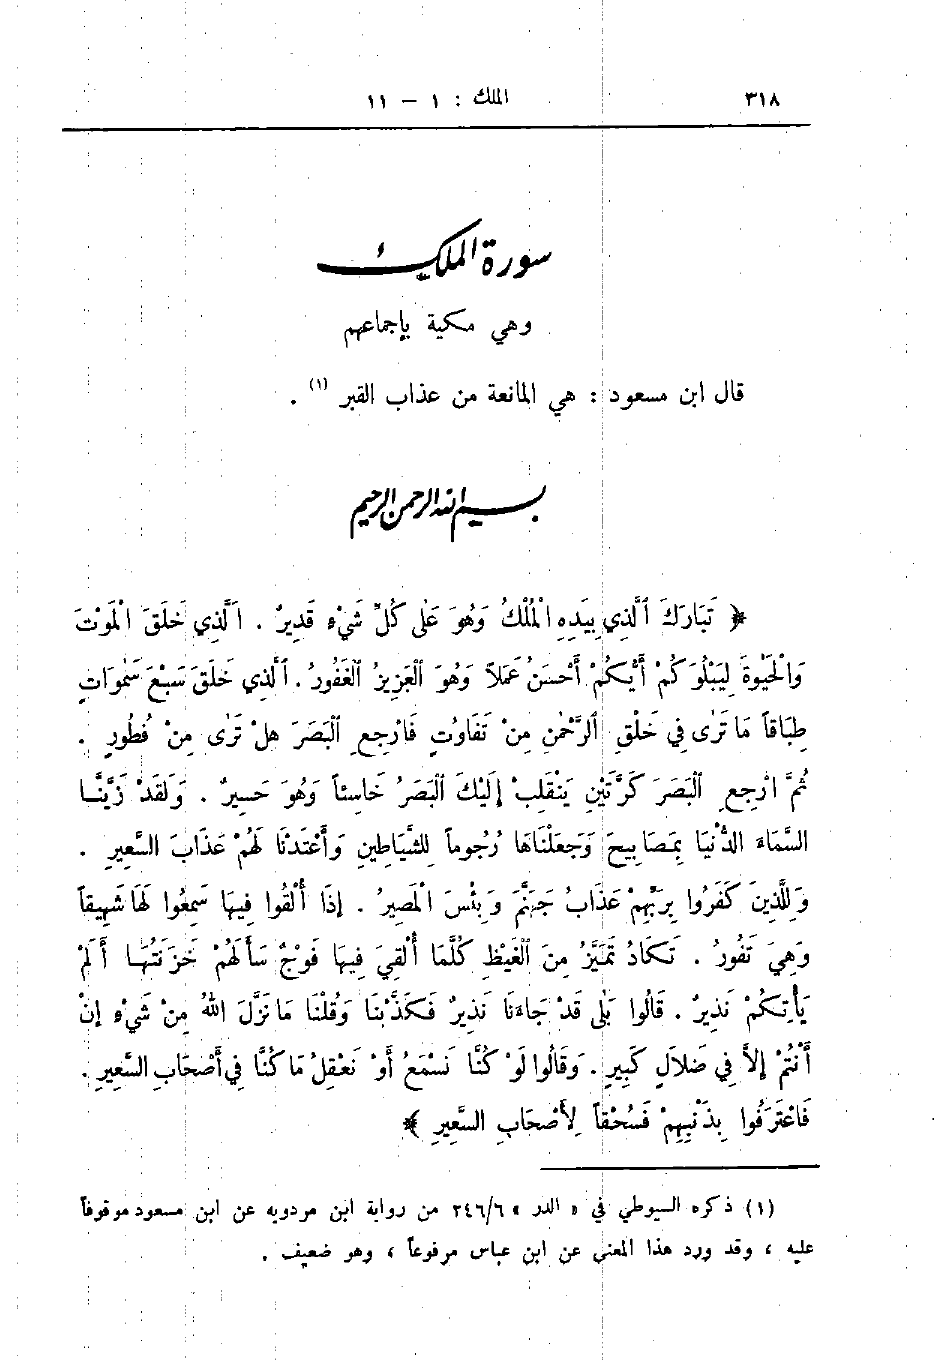 ٣١٨ الملك : ١ - ١١
سورة الملك
وهي مكية بإجماعهم
قال ابن مسعود : هي المانعة من عذاب القبر (١) .
بسم الله الرحمن الرحيم
﴿ تَبَارَكَ ٱلَّذِي بِيَدِهِ الْمُلْكُ وَهُوَ عَلٰى كُلِّ شَيْءٍ قَدِيرٌ . اَلَّذِي خَلَقَ الْمَوْتَ
وَالْحَيٰوةَ لِيَبْلُوَكُمْ أَيُّكُمْ أَحْسَنُ عَمَلاً وَهُوَ ٱلْعَزِيزُ ٱلْغَفُورُ . ٱلَّذِي خَلَقَ سَبْعَ سَمٰوَاتٍ
طِبَاقاً مَا تَرٰى فِي خَلْقِ ٱلرَّحْمٰنِ مِنْ تَفَاوُتٍ فَارْجِعِ ٱلْبَصَرَ هَلْ تَرٰى مِنْ فُطُورٍ .
ثُمَّ ارْجِعِ ٱلْبَصَرَ كَرَّتَيْنِ يَنْقَلِبْ إِلَيْكَ ٱلْبَصَرُ خَاسِئاً وَهُوَ حَسِيرٌ . وَلَقَدْ زَيَّنَّا
السَّمَاءَ الدُّنْيَا بِمَصَابِيحَ وَجَعَلْنَاهَا رُجُوماً لِلشَّيَاطِينِ وَأَعْتَدْنَا لَهُمْ عَذَابَ السَّعِيرِ .
وَلِلَّذِينَ كَفَرُوا بِرَبِّهِمْ عَذَابُ جَهَنَّمَ وَبِئْسَ الْمَصِيرُ . إِذَا أُلْقُوا فِيهَا سَمِعُوا لَهَا شَهِيقاً
وَهِيَ تَفُورُ . تَكَادُ تَمَيَّزُ مِنَ ٱلْغَيْظِ كُلَّمَا أُلْقِيَ فِيهَا فَوْجٌ سَأَلَهُمْ خَزَنَتُهَا أَلَمْ
يَأْتِكُمْ نَذِيرٌ . قَالُوا بَلٰى قَدْ جَاءَنَا نَذِيرٌ فَكَذَّبْنَا وَقُلْنَا مَا نَزَّلَ اللهُ مِنْ شَيْءٍ إِنْ
أَنْتُمْ إِلاَّ فِي ضَلاَلٍ كَبِيرٍ . وَقَالُوا لَوْ كُنَّا نَسْمَعُ أَوْ نَعْقِلُ مَا كُنَّا فِي أَصْحَابِ السَّعِيرِ .
فَاعْتَرَفُوا بِذَنْبِهِمْ فَسُحْقاً لِأَصْحَابِ السَّعِيرِ ﴾
(١) ذكره السيوطي في « الدر » ٢٤٦/٦ من رواية ابن مردويه عن ابن مسعود موقوفاً
عليه ، وقد ورد هذا المعنى عن ابن عباس مرفوعاً ، وهو ضعيف .